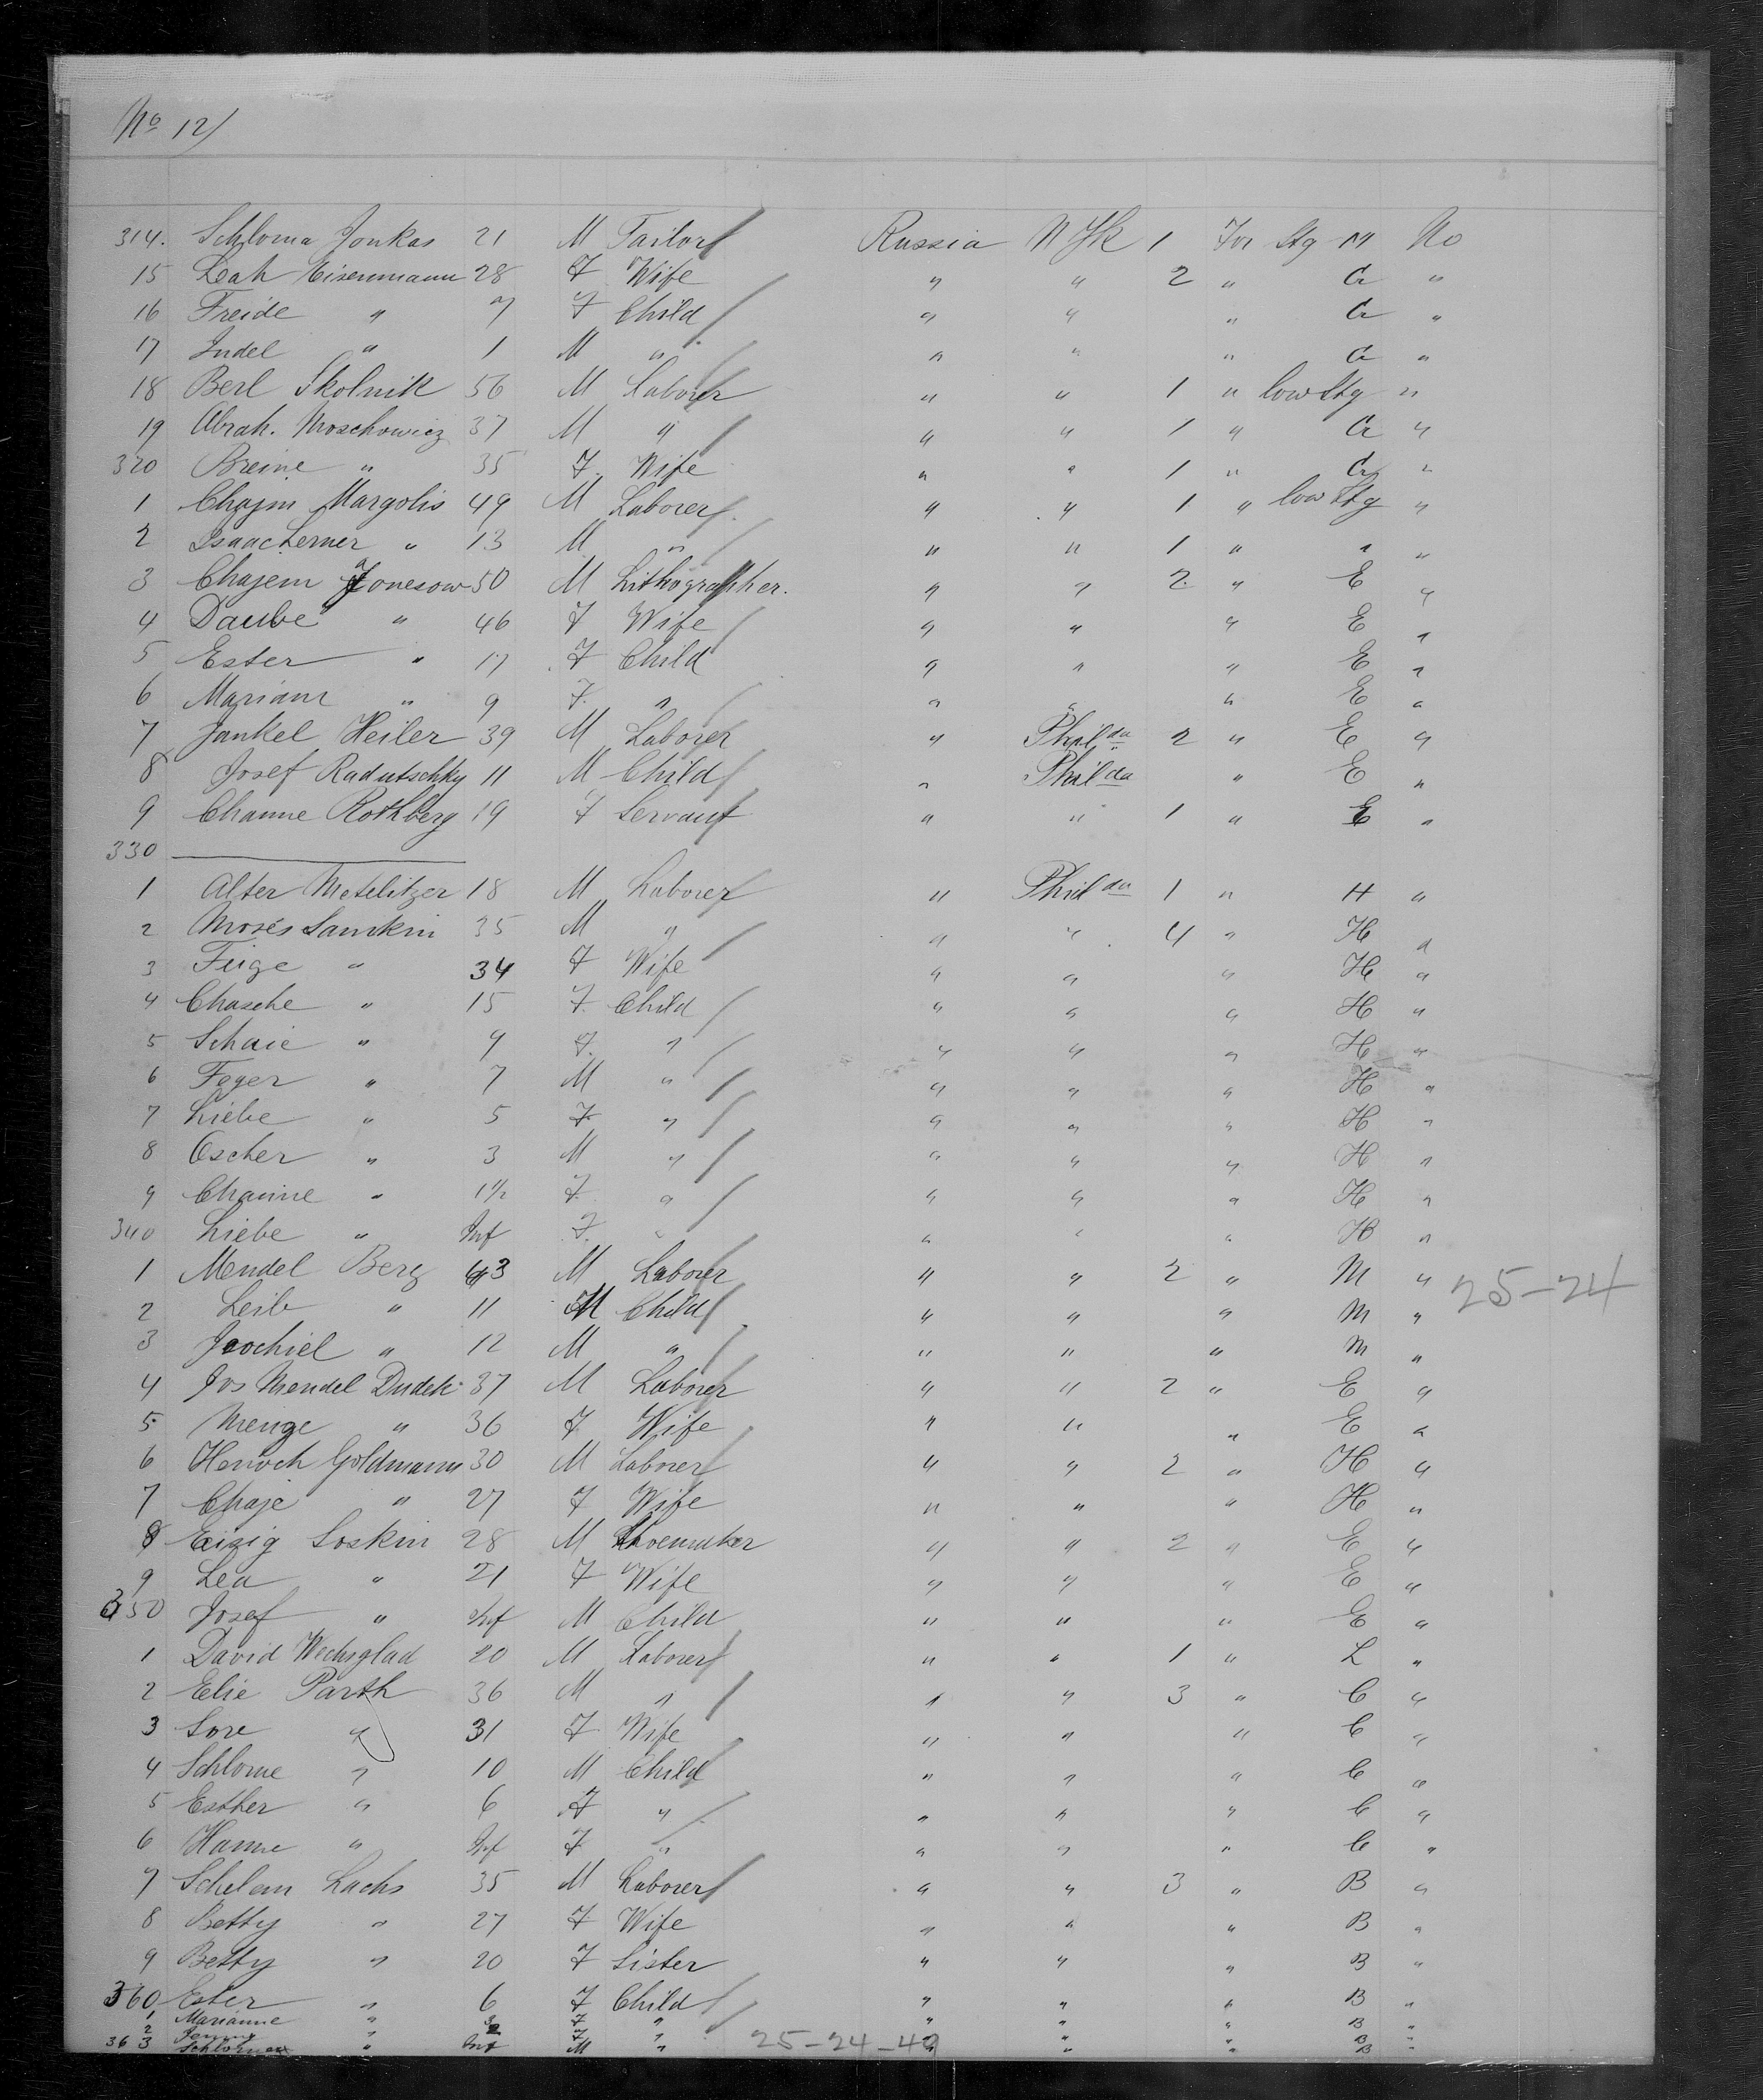 No 12/
314. Schloma Jonkas 21 M Tailor Russia N Yk 1 For Stg M No
15 Leah Eisenmann 28 F Wife " " 2 " Cr "
16 Freide " 7 F Child " " " Cr "
17 Judel " 1 M " " " " Cr "
18 Berl Skolnik 56 M Laborer " " 1 " low Stg "
19 Abrah. Moschowicz 37 M " " " 1 " Cr "
320 Breine " 35 F. Wife " " 1 " Cr "
1 Chajm Margolis 49 M Laborer " " 1 " low Stg "
2 Isaac Lerner " 13 M " " " 1 " " "
3 Chajem Jonesow 50 M Lithographer. " " 2 " E "
4 Daube " 46 F Wife " " " E "
5 Ester " 17 F Child " " " E "
6 Mariam " 9 F. " " " " E "
7 Jankel Heiler 39 M Laborer " Philda 2 " E "
8 Josef Radutschky 11 M Child " Philda " E "
9 Channe Rothberg 19 F Servant " " 1 " E "
330
1 Alter Metelitzer 18 M Laborer " Philda 1 " H "
2 Moses Samkin 35 M " " " 4 " H "
3 Feige " 34 F Wife " " " H "
4 Chasche " 15 F. Child " " " H "
5 Schaie " 9 F. " " " " H "
6 Feger " 7 M " " " " H "
7 Liebe " 5 F " " " " H "
8 Oscher " 3 M " " " " H "
9 Channe " 1½ F " " " " H "
340 Liebe " Inf F. " " " " H "
1 Mendel Berg 43 M Laborer " " 2 " M " 25-24
2 Leib " 11 M Child " " " M "
3 Jochiel " 12 M " " " " M "
4 Jos Mendel Dudek 37 M Laborer " " 2 " E "
5 Menge " 36 F Wife " " " E "
6 Henoch Goldmann 30 M Laborer " " 2 " H "
7 Chaje " 27 F Wife " " " H "
8 Eizig Soskin 28 M Shoemaker " " 2 " E "
9 Lea " 21 F Wife " " " E "
350 Josef " Inf M Child " " " E "
1 David Wechsglad 20 M Laborer " " 1 " L "
2 Elie Parth 36 M " " " 3 " C "
3 Sore " 31 F Wife " " " C "
4 Schlome " 10 M Child " " " C "
5 Esther " 6 F " " " " C "
6 Hanne " Inf F " " " " C "
7 Schelem Lachs 35 M Laborer " " 3 " B "
8 Betty " 27 F Wife " " " B "
9 Betty " 20 F Sister " " " B "
360 Ester " 6 F Child " " " B "
1 Marianne " 3 F " " " " B "
2 " F " " " " B "
363 " Inf M " 25-24-49 " " " B "